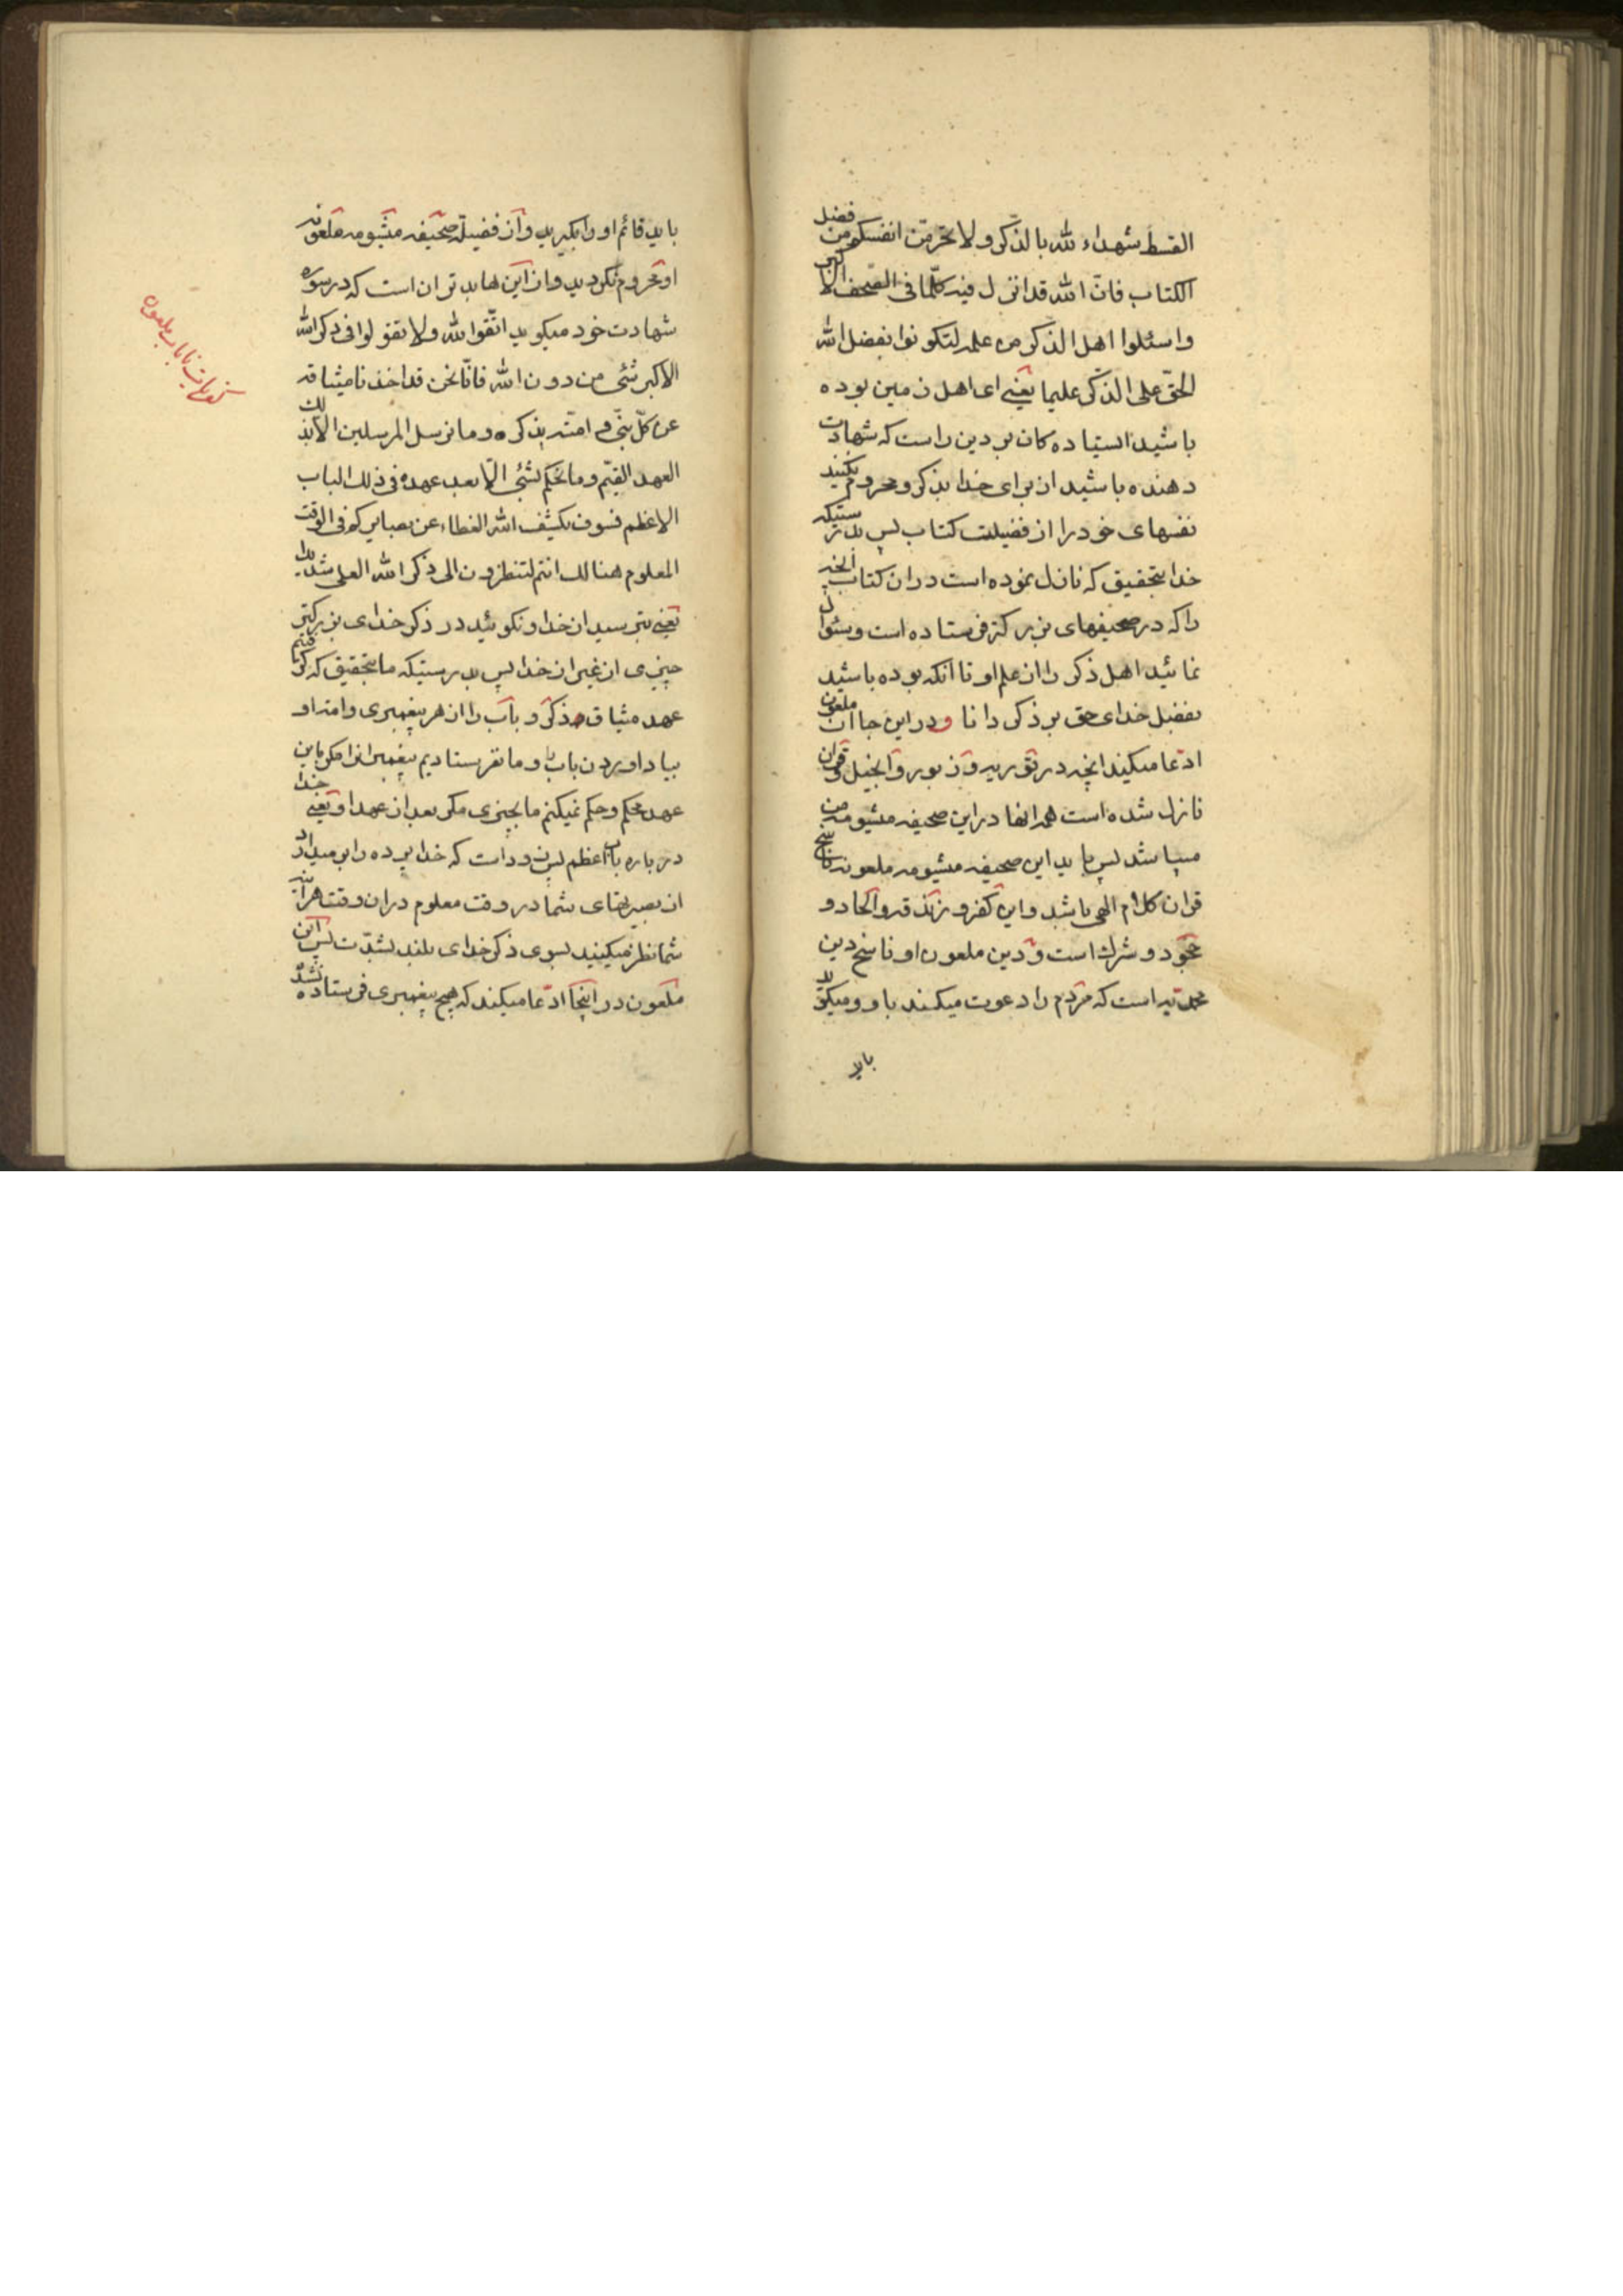 القسط شهداء لله بالذكر و لا تحرمنّ انفسكم من فضل
الكتاب فانّ الله قد انزل فیه كلّما فی الصّحف الاكبر
و اسئلوا اهل الذكر من علمه لتكونوا بفضل الله
الحقّ علی الذّكر علیما یعنی ای اهل زمین بوده
باشید ایستاده كان بر دین راست كه شهادت
دهنده باشید از برای خدا بذكر و محروم نكنید
نفسهای خود را از فضیلت كتاب پس بدرستیكه
خدا بتحقیق كه نازل نموده است در ان كتاب انچه
را كه در صحیفهای بزركتر فرستاده است و سئوال
نمائید اهل ذكر را از علم او تا آنكه بوده باشید
بفضل خدای حق بر ذكر دانا و در این جا ان ملعون
ادّعا میكند انچه در توریة و زبور و انجیل و قران
نازل شده است همه انها در این صحیفه مشیومه من
میباشد پس باید این صحیفه مشیومه ملعونه ناسخ
قران كلام الهی باشد و این كفر و زندقه و الحاد و
جحود و شرك است و دین ملعون او ناسخ دین
محمّدیه است كه مردم را دعوت میكند باو و میكوید
باید
باید قائم او را بكیرید و از فضیلة صحیفه مشیومه ملعونه
او محروم نكردید و از این ها بدتر ان است كه در سوره
شهادت خود میكوید اتّقوا لله و لا تقولوا فی ذكر الله
الاكبر شئی من دون الله فانّا نحن قد اخذنا میثاقه
عن كلّ نبیّ و امته بذكره و ما نرسل المرسلین الّا بذلك
العهد القیّم و ما نحكم لشئی الّا بعد عهده فی ذلك الباب
الاعظم فسوف یكشف الله الغطاء عن بصایركم فی الوقت
المعلوم هنالك انتم لتنظرون الی ذكر الله العلی شدیدا
یعنی بترسید از خدا و نكوئید در ذكر خدای بزركتر
چیزی از غیر از خدا پس بدرستیكه ما بتحقیق كه كرفتیم
عهد میثاق ذكر و باب را از هر پیغمبری و امت او
بیاد اوردن باب را و ما نفرستادیم پیغمبرانرا مكر باین
عهد محكم و حكم نمیكنم ما بچیزی مكر بعد از عهد او یعنی خدا
در باره باب اعظم پس زود است كه خدا پرده را بر میدارد
از بصیرتهای شما در وقت معلوم در ان وقت هراینه
شما نظر میكنید بسوی ذكر خدای بلند بشدّت پس این
ملعون در اینجا ادّعا میكند كه هیچ پیغمبری فرستاده نشد
كفریات باب ملعون